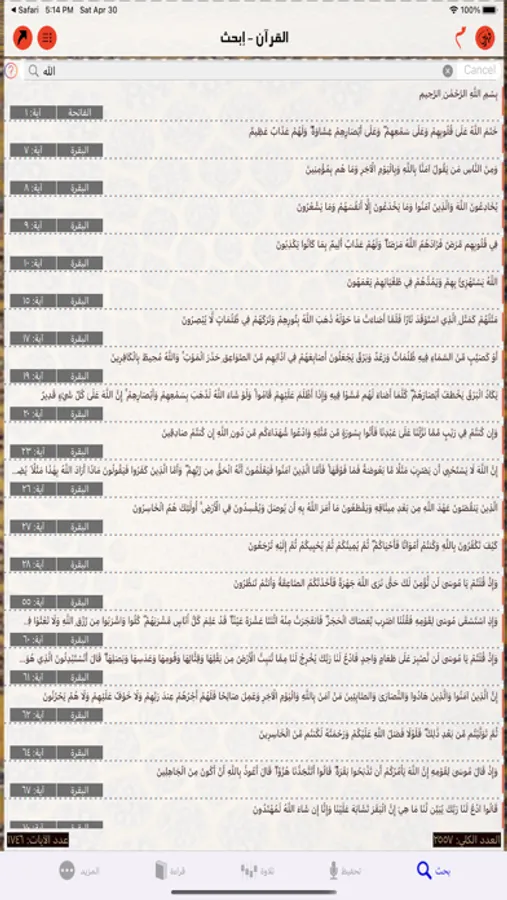 Safari 5:14 PM Sat Apr 30 100%
القرآن - إبحث
الله Cancel
بِسْمِ اللَّهِ الرَّحْمَٰنِ الرَّحِيمِ
الفاتحة آية: ١
خَتَمَ اللَّهُ عَلَىٰ قُلُوبِهِمْ وَعَلَىٰ سَمْعِهِمْ ۖ وَعَلَىٰ أَبْصَارِهِمْ غِشَاوَةٌ ۖ وَلَهُمْ عَذَابٌ عَظِيمٌ
البقرة آية: ٧
وَمِنَ النَّاسِ مَن يَقُولُ آمَنَّا بِاللَّهِ وَبِالْيَوْمِ الْآخِرِ وَمَا هُم بِمُؤْمِنِينَ
البقرة آية: ٨
يُخَادِعُونَ اللَّهَ وَالَّذِينَ آمَنُوا وَمَا يَخْدَعُونَ إِلَّا أَنفُسَهُمْ وَمَا يَشْعُرُونَ
البقرة آية: ٩
فِي قُلُوبِهِم مَّرَضٌ فَزَادَهُمُ اللَّهُ مَرَضًا ۖ وَلَهُمْ عَذَابٌ أَلِيمٌ بِمَا كَانُوا يَكْذِبُونَ
البقرة آية: ١٠
اللَّهُ يَسْتَهْزِئُ بِهِمْ وَيَمُدُّهُمْ فِي طُغْيَانِهِمْ يَعْمَهُونَ
البقرة آية: ١٥
مَثَلُهُمْ كَمَثَلِ الَّذِي اسْتَوْقَدَ نَارًا فَلَمَّا أَضَاءَتْ مَا حَوْلَهُ ذَهَبَ اللَّهُ بِنُورِهِمْ وَتَرَكَهُمْ فِي ظُلُمَاتٍ لَّا يُبْصِرُونَ
البقرة آية: ١٧
أَوْ كَصَيِّبٍ مِّنَ السَّمَاءِ فِيهِ ظُلُمَاتٌ وَرَعْدٌ وَبَرْقٌ يَجْعَلُونَ أَصَابِعَهُمْ فِي آذَانِهِم مِّنَ الصَّوَاعِقِ حَذَرَ الْمَوْتِ ۚ وَاللَّهُ مُحِيطٌ بِالْكَافِرِينَ
البقرة آية: ١٩
يَكَادُ الْبَرْقُ يَخْطَفُ أَبْصَارَهُمْ ۖ كُلَّمَا أَضَاءَ لَهُم مَّشَوْا فِيهِ وَإِذَا أَظْلَمَ عَلَيْهِمْ قَامُوا ۚ وَلَوْ شَاءَ اللَّهُ لَذَهَبَ بِسَمْعِهِمْ وَأَبْصَارِهِمْ ۚ إِنَّ اللَّهَ عَلَىٰ كُلِّ شَيْءٍ قَدِيرٌ
البقرة آية: ٢٠
وَإِن كُنتُمْ فِي رَيْبٍ مِّمَّا نَزَّلْنَا عَلَىٰ عَبْدِنَا فَأْتُوا بِسُورَةٍ مِّن مِّثْلِهِ وَادْعُوا شُهَدَاءَكُم مِّن دُونِ اللَّهِ إِن كُنتُمْ صَادِقِينَ
البقرة آية: ٢٣
إِنَّ اللَّهَ لَا يَسْتَحْيِي أَن يَضْرِبَ مَثَلًا مَّا بَعُوضَةً فَمَا فَوْقَهَا ۚ فَأَمَّا الَّذِينَ آمَنُوا فَيَعْلَمُونَ أَنَّهُ الْحَقُّ مِن رَّبِّهِمْ ۖ وَأَمَّا الَّذِينَ كَفَرُوا فَيَقُولُونَ مَاذَا أَرَادَ اللَّهُ بِهَٰذَا مَثَلًا ۘ يُضِـ..
البقرة آية: ٢٦
الَّذِينَ يَنقُضُونَ عَهْدَ اللَّهِ مِن بَعْدِ مِيثَاقِهِ وَيَقْطَعُونَ مَا أَمَرَ اللَّهُ بِهِ أَن يُوصَلَ وَيُفْسِدُونَ فِي الْأَرْضِ ۚ أُولَٰئِكَ هُمُ الْخَاسِرُونَ
البقرة آية: ٢٧
كَيْفَ تَكْفُرُونَ بِاللَّهِ وَكُنتُمْ أَمْوَاتًا فَأَحْيَاكُمْ ۖ ثُمَّ يُمِيتُكُمْ ثُمَّ يُحْيِيكُمْ ثُمَّ إِلَيْهِ تُرْجَعُونَ
البقرة آية: ٢٨
وَإِذْ قُلْتُمْ يَا مُوسَىٰ لَن نُّؤْمِنَ لَكَ حَتَّىٰ نَرَى اللَّهَ جَهْرَةً فَأَخَذَتْكُمُ الصَّاعِقَةُ وَأَنتُمْ تَنظُرُونَ
البقرة آية: ٥٥
وَإِذِ اسْتَسْقَىٰ مُوسَىٰ لِقَوْمِهِ فَقُلْنَا اضْرِب بِّعَصَاكَ الْحَجَرَ ۖ فَانفَجَرَتْ مِنْهُ اثْنَتَا عَشْرَةَ عَيْنًا ۖ قَدْ عَلِمَ كُلُّ أُنَاسٍ مَّشْرَبَهُمْ ۖ كُلُوا وَاشْرَبُوا مِن رِّزْقِ اللَّهِ وَلَا تَعْثَوْا فِـ..
البقرة آية: ٦٠
وَإِذْ قُلْتُمْ يَا مُوسَىٰ لَن نَّصْبِرَ عَلَىٰ طَعَامٍ وَاحِدٍ فَادْعُ لَنَا رَبَّكَ يُخْرِجْ لَنَا مِمَّا تُنبِتُ الْأَرْضُ مِن بَقْلِهَا وَقِثَّائِهَا وَفُومِهَا وَعَدَسِهَا وَبَصَلِهَا ۖ قَالَ أَتَسْتَبْدِلُونَ الَّذِي هُوَ...
البقرة آية: ٦١
إِنَّ الَّذِينَ آمَنُوا وَالَّذِينَ هَادُوا وَالنَّصَارَىٰ وَالصَّابِئِينَ مَنْ آمَنَ بِاللَّهِ وَالْيَوْمِ الْآخِرِ وَعَمِلَ صَالِحًا فَلَهُمْ أَجْرُهُمْ عِندَ رَبِّهِمْ وَلَا خَوْفٌ عَلَيْهِمْ وَلَا هُمْ يَحْزَنُونَ
البقرة آية: ٦٢
ثُمَّ تَوَلَّيْتُم مِّن بَعْدِ ذَٰلِكَ ۖ فَلَوْلَا فَضْلُ اللَّهِ عَلَيْكُمْ وَرَحْمَتُهُ لَكُنتُم مِّنَ الْخَاسِرِينَ
البقرة آية: ٦٤
وَإِذْ قَالَ مُوسَىٰ لِقَوْمِهِ إِنَّ اللَّهَ يَأْمُرُكُمْ أَن تَذْبَحُوا بَقَرَةً ۖ قَالُوا أَتَتَّخِذُنَا هُزُوًا ۖ قَالَ أَعُوذُ بِاللَّهِ أَنْ أَكُونَ مِنَ الْجَاهِلِينَ
البقرة آية: ٦٧
قَالُوا ادْعُ لَنَا رَبَّكَ يُبَيِّن لَّنَا مَا هِيَ إِنَّ الْبَقَرَ تَشَابَهَ عَلَيْنَا وَإِنَّا إِن شَاءَ اللَّهُ لَمُهْتَدُونَ
العدد الكلي: ٢٥٥٧ عدد الآيات: ١٧٤٦
بحث تحفيظ تلاوة قراءة المزيد